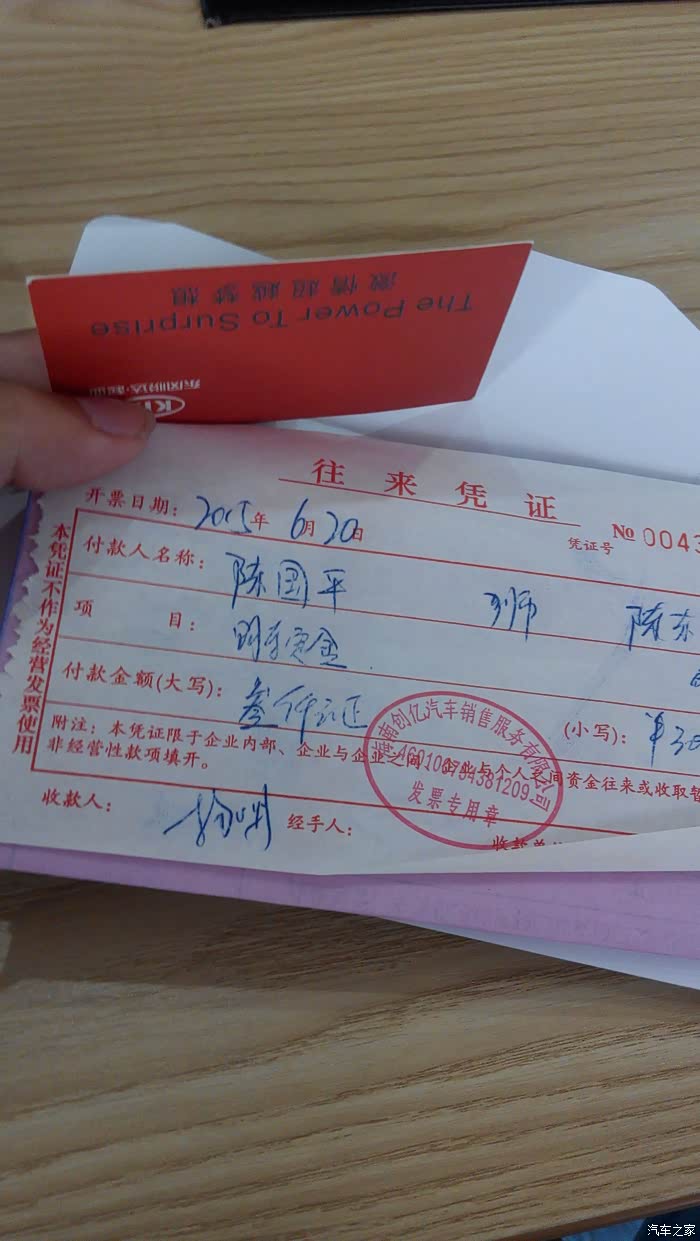 The Power To Surprise
激情超越梦想
东风悦达·起亚
往来凭证
开票日期: 2015年 6月20日
凭证号 № 0043
付款人名称: 陈国平
项目: 购车定金
付款金额(大写): 叁仟元正
(小写): ¥30
附注: 本凭证限于企业内部、企业与企业之间、企业与个人之间资金往来或收取暂
非经营性款项填开。
收款人:
经手人:
本凭证不作为经营发票使用
海南创亿汽车销售服务有限公司
发票专用章
汽车之家